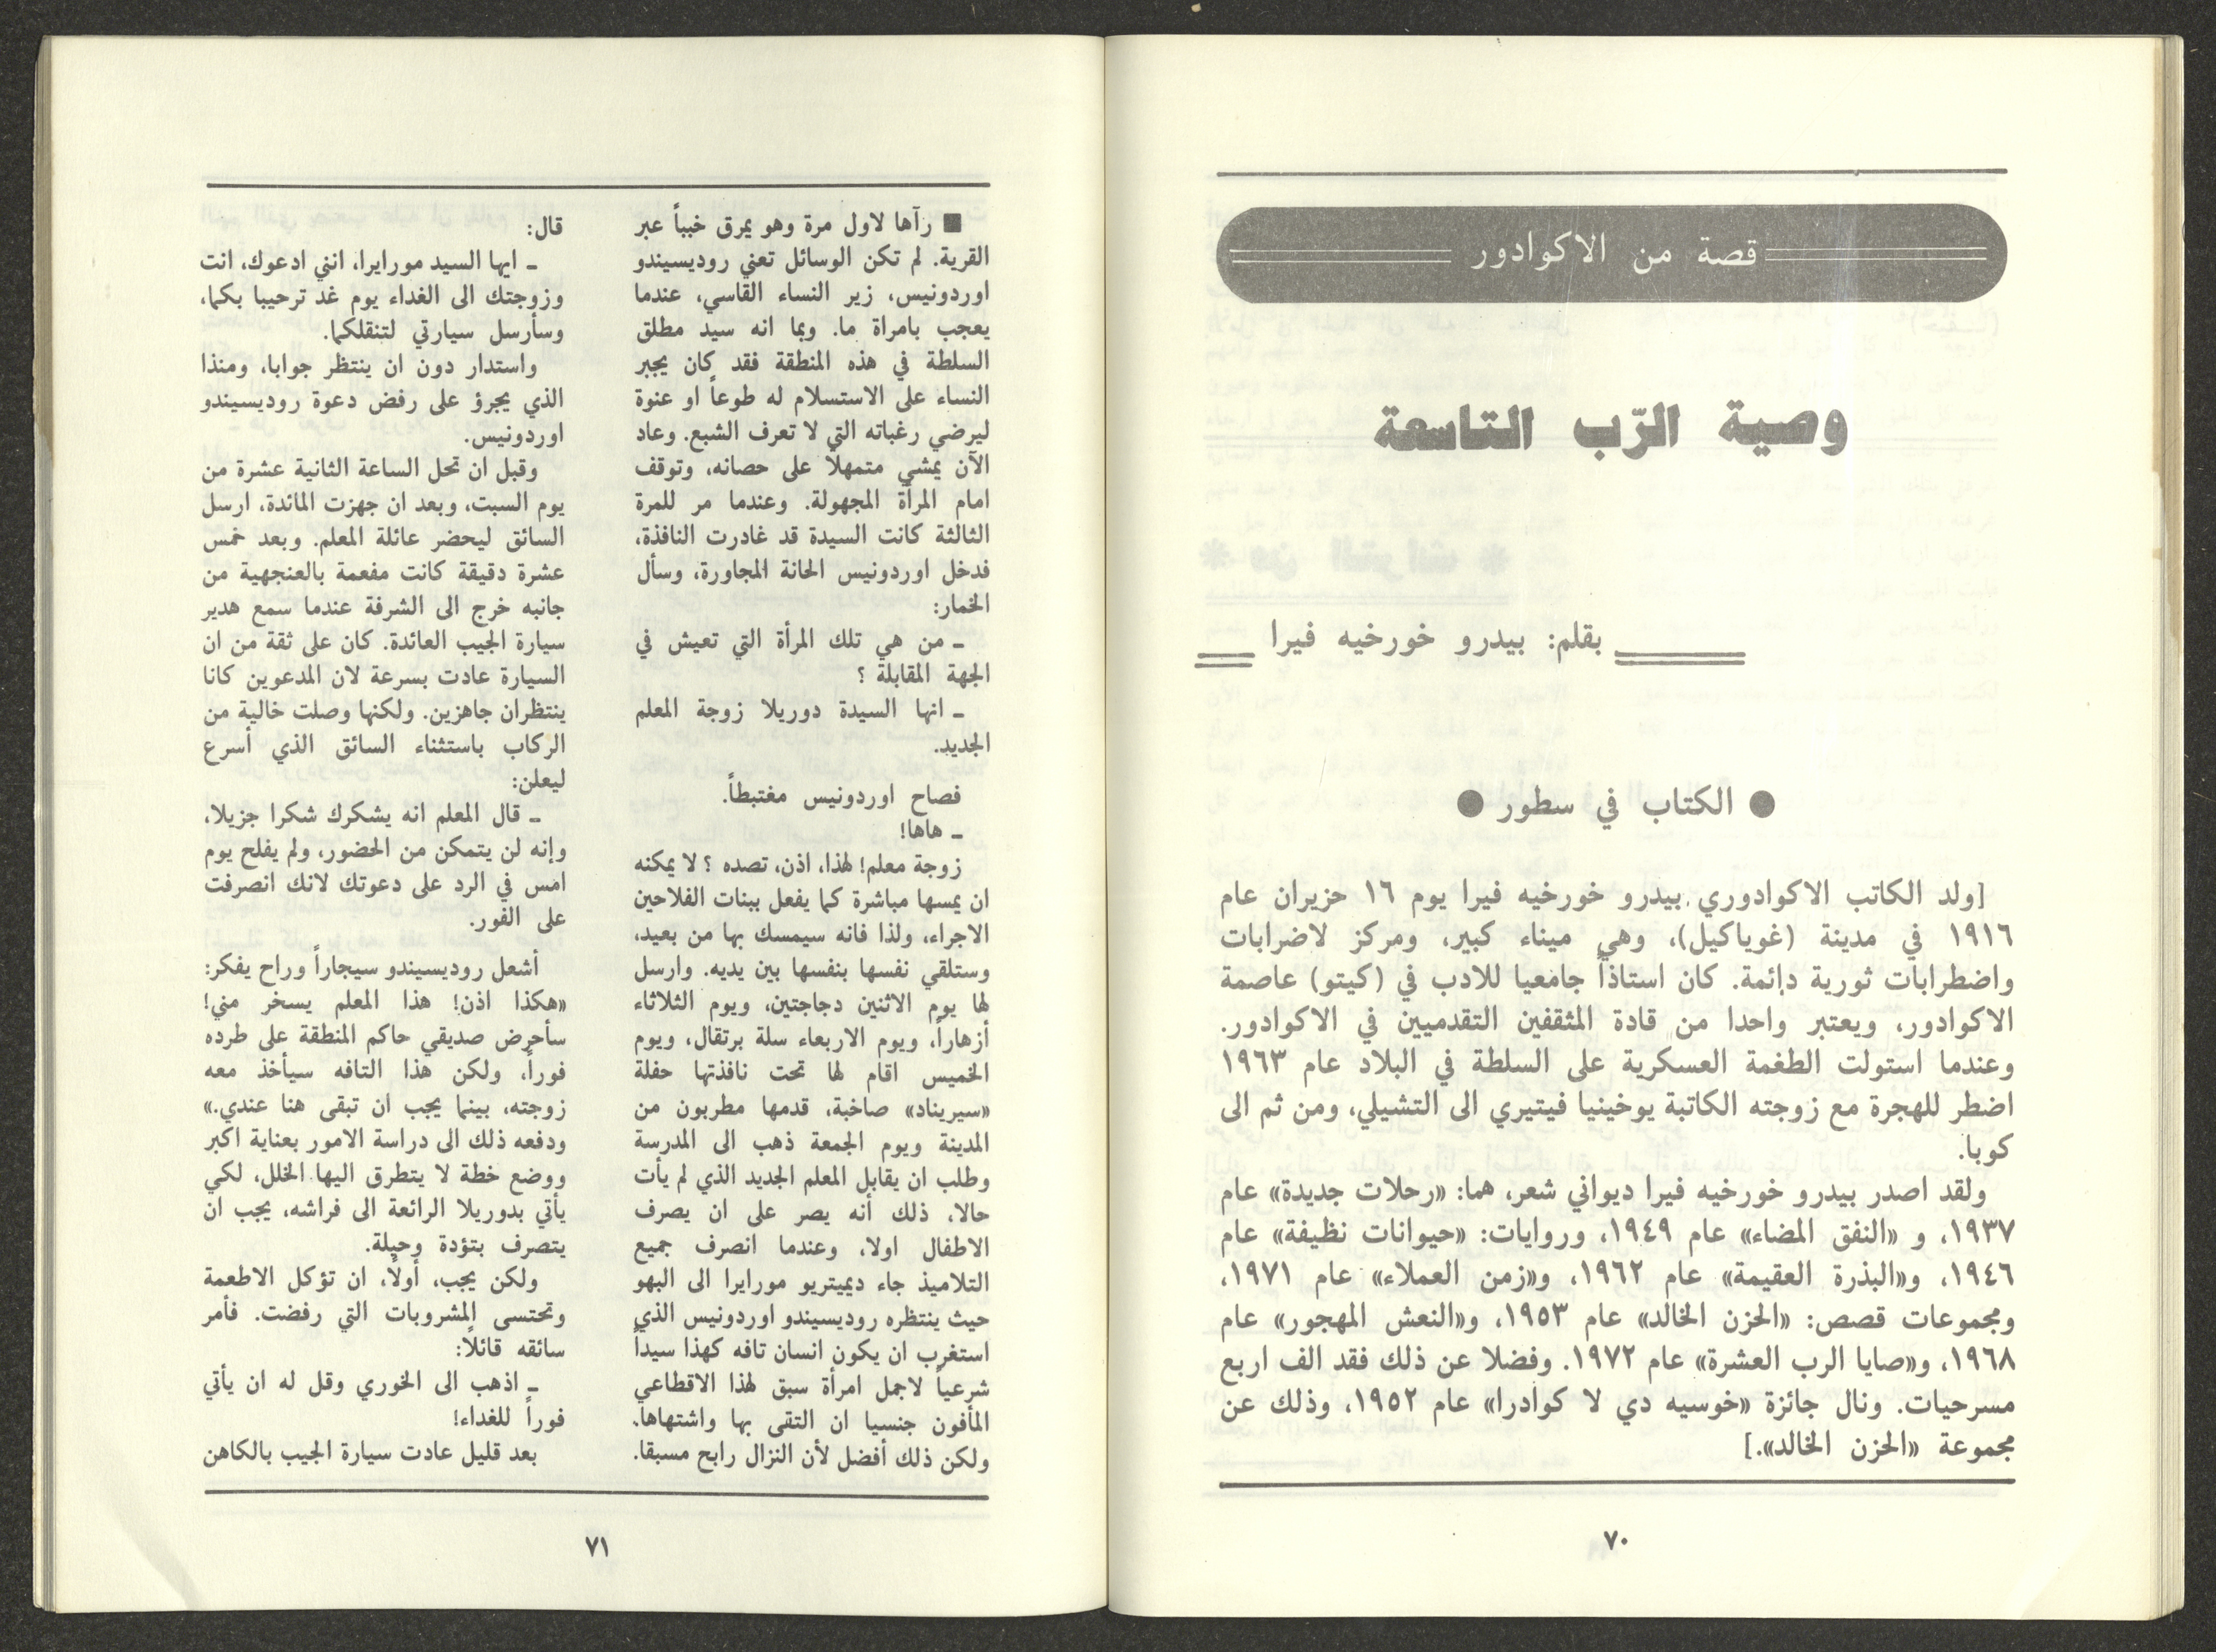 قصة من الاكوادور
وصية الرّب التاسعة
بقلم: بيدرو خورخيه فيرا
● الكتاب في سطور ●
[ولد الكاتب الاكوادوري بيدرو خورخيه فيرا يوم ١٦ حزيران عام
١٩١٦ في مدينة (غوياكيل)، وهي ميناء كبير، ومركز لاضرابات
واضطرابات ثورية دائمة. كان استاذاً جامعيا للادب في (كيتو) عاصمة
الاكوادور، ويعتبر واحدا من قادة المثقفين التقدميين في الاكوادور.
وعندما استولت الطغمة العسكرية على السلطة في البلاد عام ١٩٦٣
اضطر للهجرة مع زوجته الكاتبة يوخينيا فيتيري الى التشيلي، ومن ثم الى
كوبا.
ولقد اصدر بيدرو خورخيه فيرا ديواني شعر، هما: «رحلات جديدة» عام
١٩٣٧، و «النفق المضاء» عام ١٩٤٩، وروايات: «حيوانات نظيفة» عام
١٩٤٦، و«البذرة العقيمة» عام ١٩٦٢، و«زمن العملاء» عام ١٩٧١،
ومجموعات قصص: «الحزن الخالد» عام ١٩٥٣، و«النعش المهجور» عام
١٩٦٨، و«صايا الرب العشرة» عام ١٩٧٢. وفضلا عن ذلك فقد الف اربع
مسرحيات. ونال جائزة «خوسيه دي لا كوادرا» عام ١٩٥٢، وذلك عن
مجموعة «الحزن الخالد».]
٧٠
■ رآها لاول مرة وهو يمرق خبباً عبر
القرية. لم تكن الوسائل تعني روديسيندو
اوردونيس، زير النساء القاسي، عندما
يعجب بامراة ما. وبما انه سيد مطلق
السلطة في هذه المنطقة فقد كان يجبر
النساء على الاستسلام له طوعاً او عنوة
ليرضي رغباته التي لا تعرف الشبع. وعاد
الآن يمشي متمهلاً على حصانه، وتوقف
امام المرأة المجهولة. وعندما مر للمرة
الثالثة كانت السيدة قد غادرت النافذة،
فدخل اوردونيس الحانة المجاورة، وسأل
الخمار:
ـ من هي تلك المرأة التي تعيش في
الجهة المقابلة ؟
ـ انها السيدة دوريلا زوجة المعلم
الجديد.
فصاح اوردونيس مغتبطاً.
ـ هاها!
زوجة معلم! لهذا، اذن، تصده ؟ لا يمكنه
ان يمسها مباشرة كما يفعل ببنات الفلاحين
الاجراء، ولذا فانه سيمسك بها من بعيد،
وستلقي نفسها بنفسها بين يديه. وارسل
لها يوم الاثنين دجاجتين، ويوم الثلاثاء
أزهاراً، ويوم الاربعاء سلة برتقال، ويوم
الخميس اقام لها تحت نافذتها حفلة
«سيريناد» صاخبة، قدمها مطربون من
المدينة ويوم الجمعة ذهب الى المدرسة
وطلب ان يقابل المعلم الجديد الذي لم يأت
حالا، ذلك أنه يصر على ان يصرف
الاطفال اولا، وعندما انصرف جميع
التلاميذ جاء ديميتريو مورايرا الى البهو
حيث ينتظره روديسيندو اوردونيس الذي
استغرب ان يكون انسان تافه كهذا سيداً
شرعياً لاجمل امرأة سبق لهذا الاقطاعي
المأفون جنسيا ان التقى بها واشتهاها.
ولكن ذلك أفضل لأن النزال رابح مسبقا.
قال:
ـ ايها السيد مورايرا، انني ادعوك، انت
وزوجتك الى الغداء يوم غد ترحيبا بكما،
وسأرسل سيارتي لتنقلكما.
واستدار دون ان ينتظر جوابا، ومنذا
الذي يجرؤ على رفض دعوة روديسيندو
اوردونيس.
وقبل ان تحل الساعة الثانية عشرة من
يوم السبت، وبعد ان جهزت المائدة، ارسل
السائق ليحضر عائلة المعلم. وبعد خمس
عشرة دقيقة كانت مفعمة بالعنجهية من
جانبه خرج الى الشرفة عندما سمع هدير
سيارة الجيب العائدة. كان على ثقة من ان
السيارة عادت بسرعة لان المدعوين كانا
ينتظران جاهزين. ولكنها وصلت خالية من
الركاب باستثناء السائق الذي أسرع
ليعلن:
ـ قال المعلم انه يشكرك شكرا جزيلا،
وإنه لن يتمكن من الحضور، ولم يفلح يوم
امس في الرد على دعوتك لانك انصرفت
على الفور.
أشعل روديسيندو سيجاراً وراح يفكر:
«هكذا اذن! هذا المعلم يسخر مني!
سأحرض صديقي حاكم المنطقة على طرده
فوراً، ولكن هذا التافه سيأخذ معه
زوجته، بينما يجب ان تبقى هنا عندي.»
ودفعه ذلك الى دراسة الامور بعناية اكبر
ووضع خطة لا يتطرق اليها الخلل، لكي
يأتي بدوريلا الرائعة الى فراشه، يجب ان
يتصرف بتؤدة وحيلة.
ولكن يجب، أولاً، ان تؤكل الاطعمة
وتحتسى المشروبات التي رفضت. فأمر
سائقه قائلاً:
ـ اذهب الى الخوري وقل له ان يأتي
فوراً للغداء!
بعد قليل عادت سيارة الجيب بالكاهن
٧١